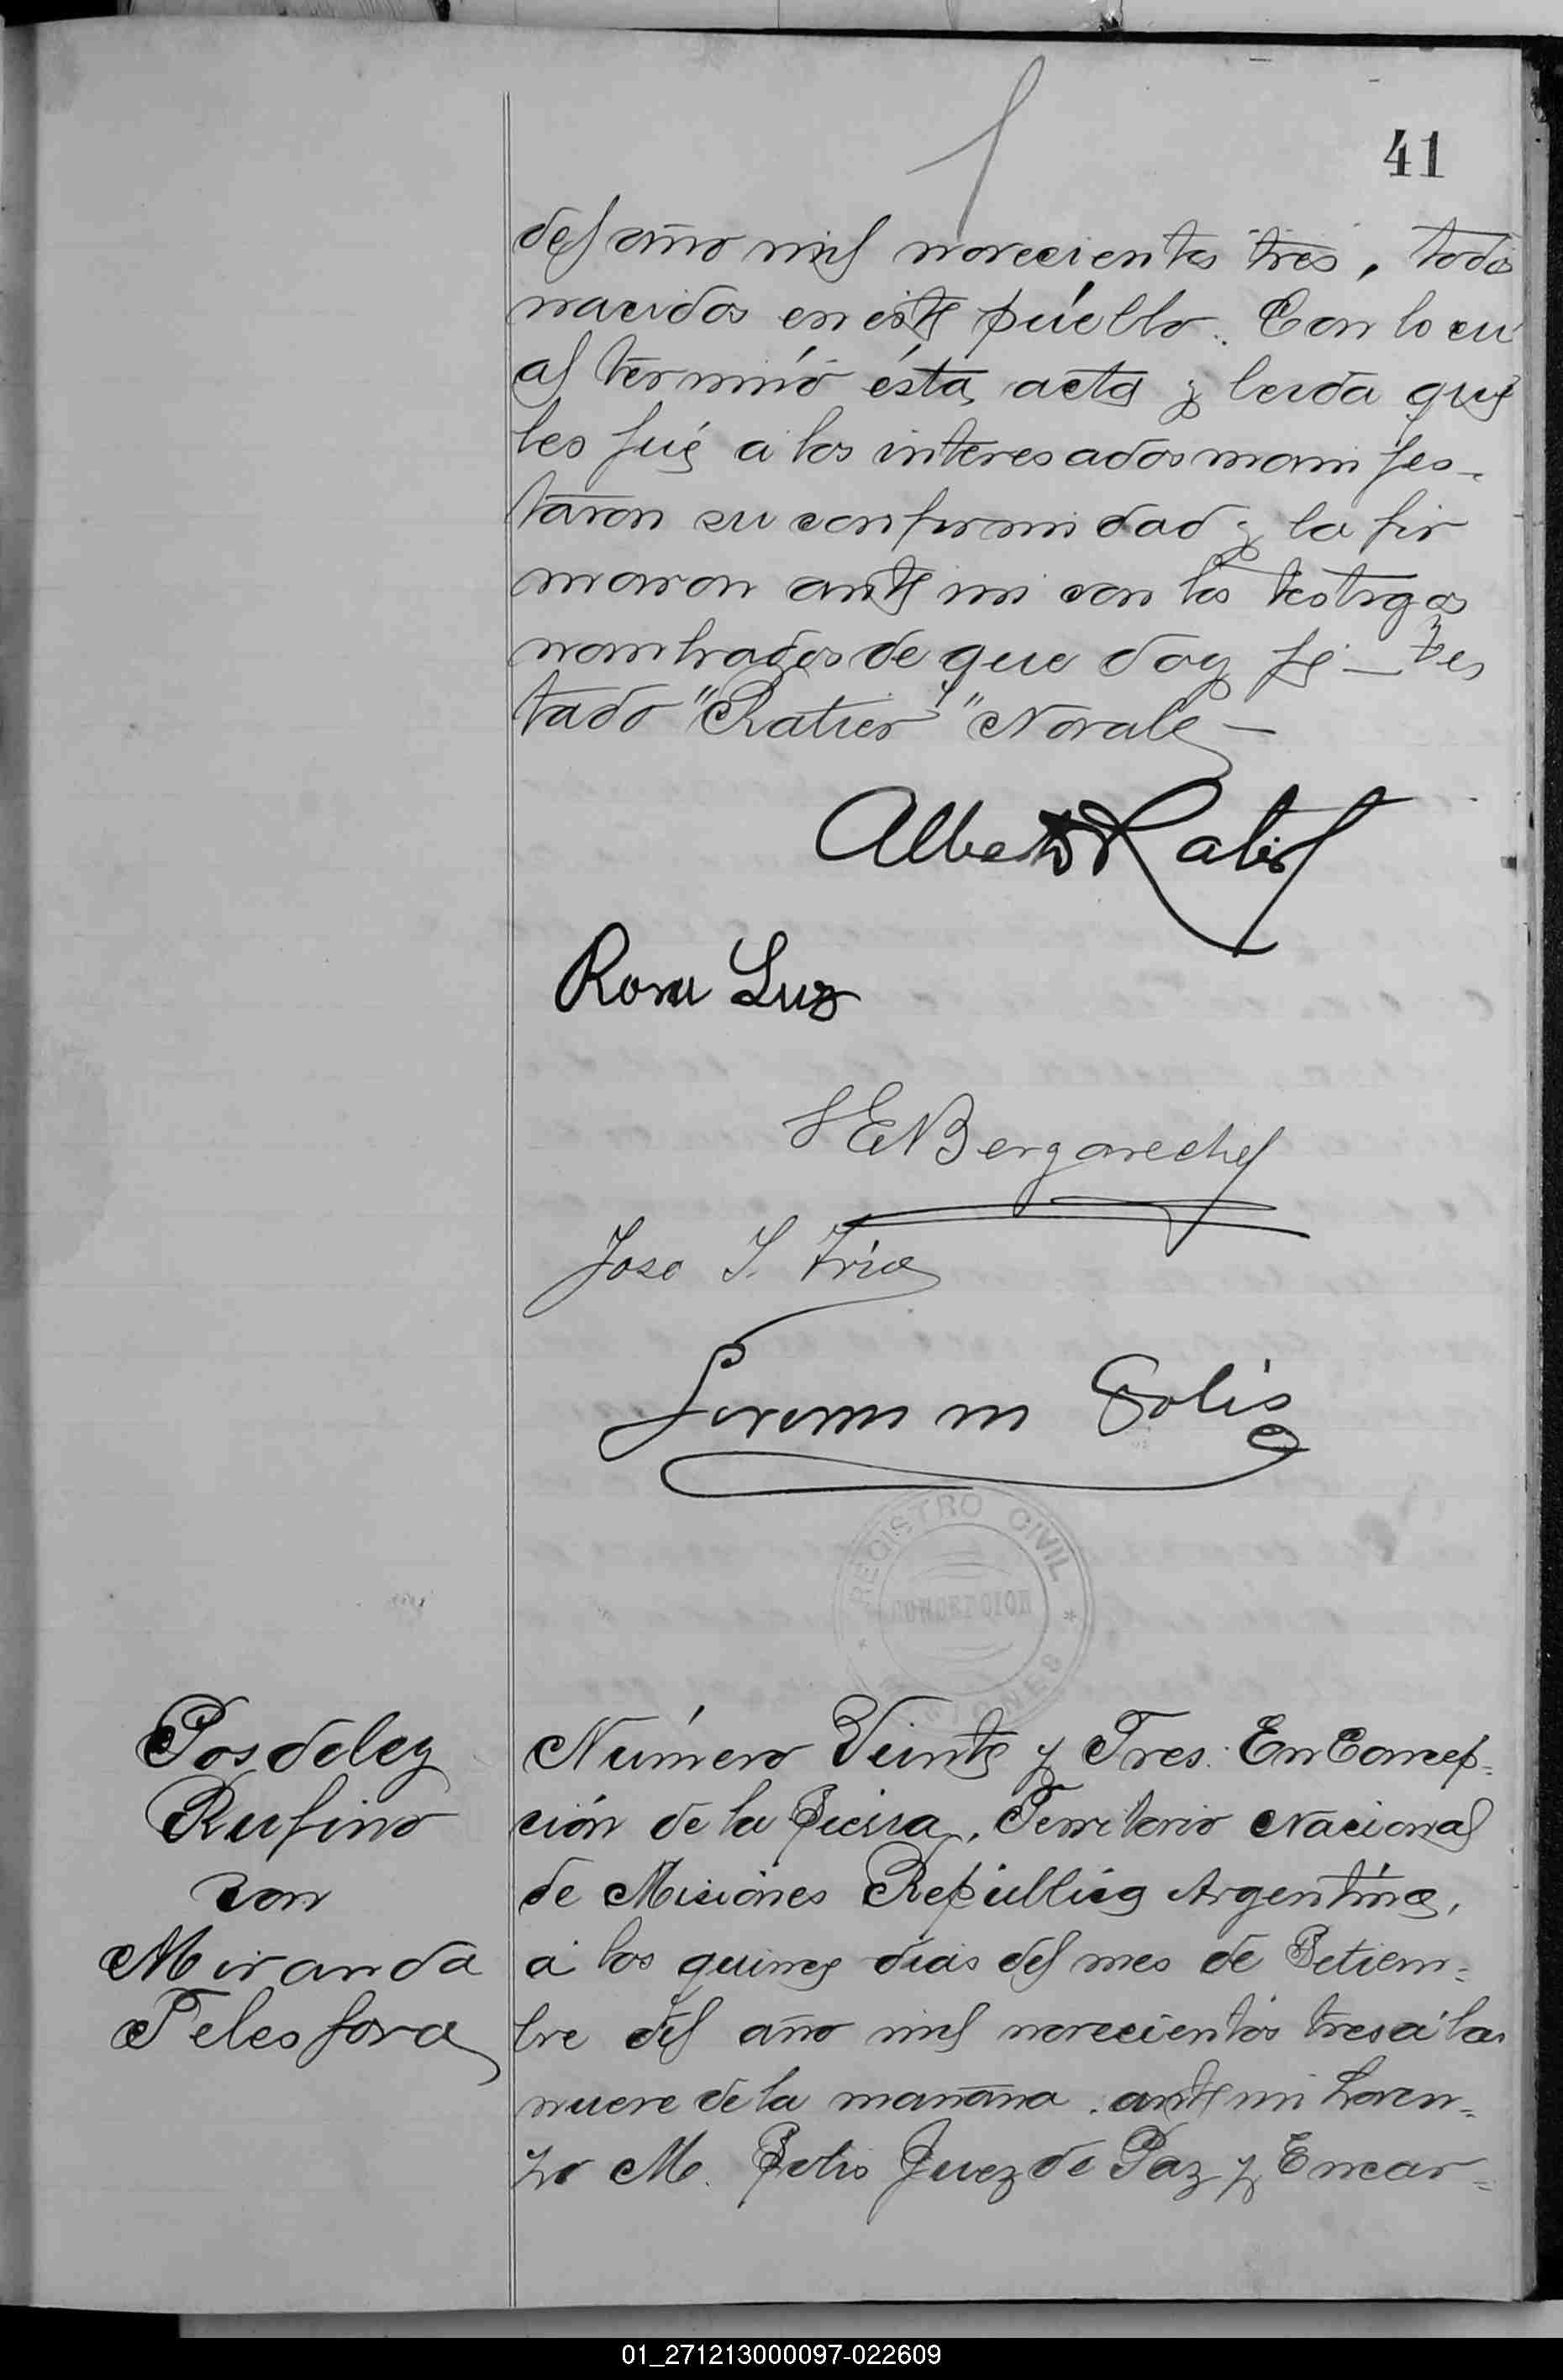 41
del año mil novecientos tres, todos
nacidos en éste pueblo. Con lo cu
al terminó ésta acta y leida que
les fué á los interesados manifes-
taron su conformidad y la fir
maron ante mi con los testigos
nombrados de que doy fé — tes
tado "Ratier" "No vale —
Alberto Ratier
Rosa Luz
E Bergareche
Jose S. Frias
Lorenzo M Solis
REGISTRO CIVIL
CONCEPCION
MISIONES
Posdeley
Rufino
con
Miranda
Telesfora
Número Veinte y Tres. En Concep-
ción de la Sierra, Territorio Nacional
de Misiones República Argentina,
á los quince dias del mes de Setiem-
bre del año mil novecientos tres á las
nueve de la mañana, ante mi Loren-
zo M. Solis Juez de Paz y Encar-
01_271213000097-022609